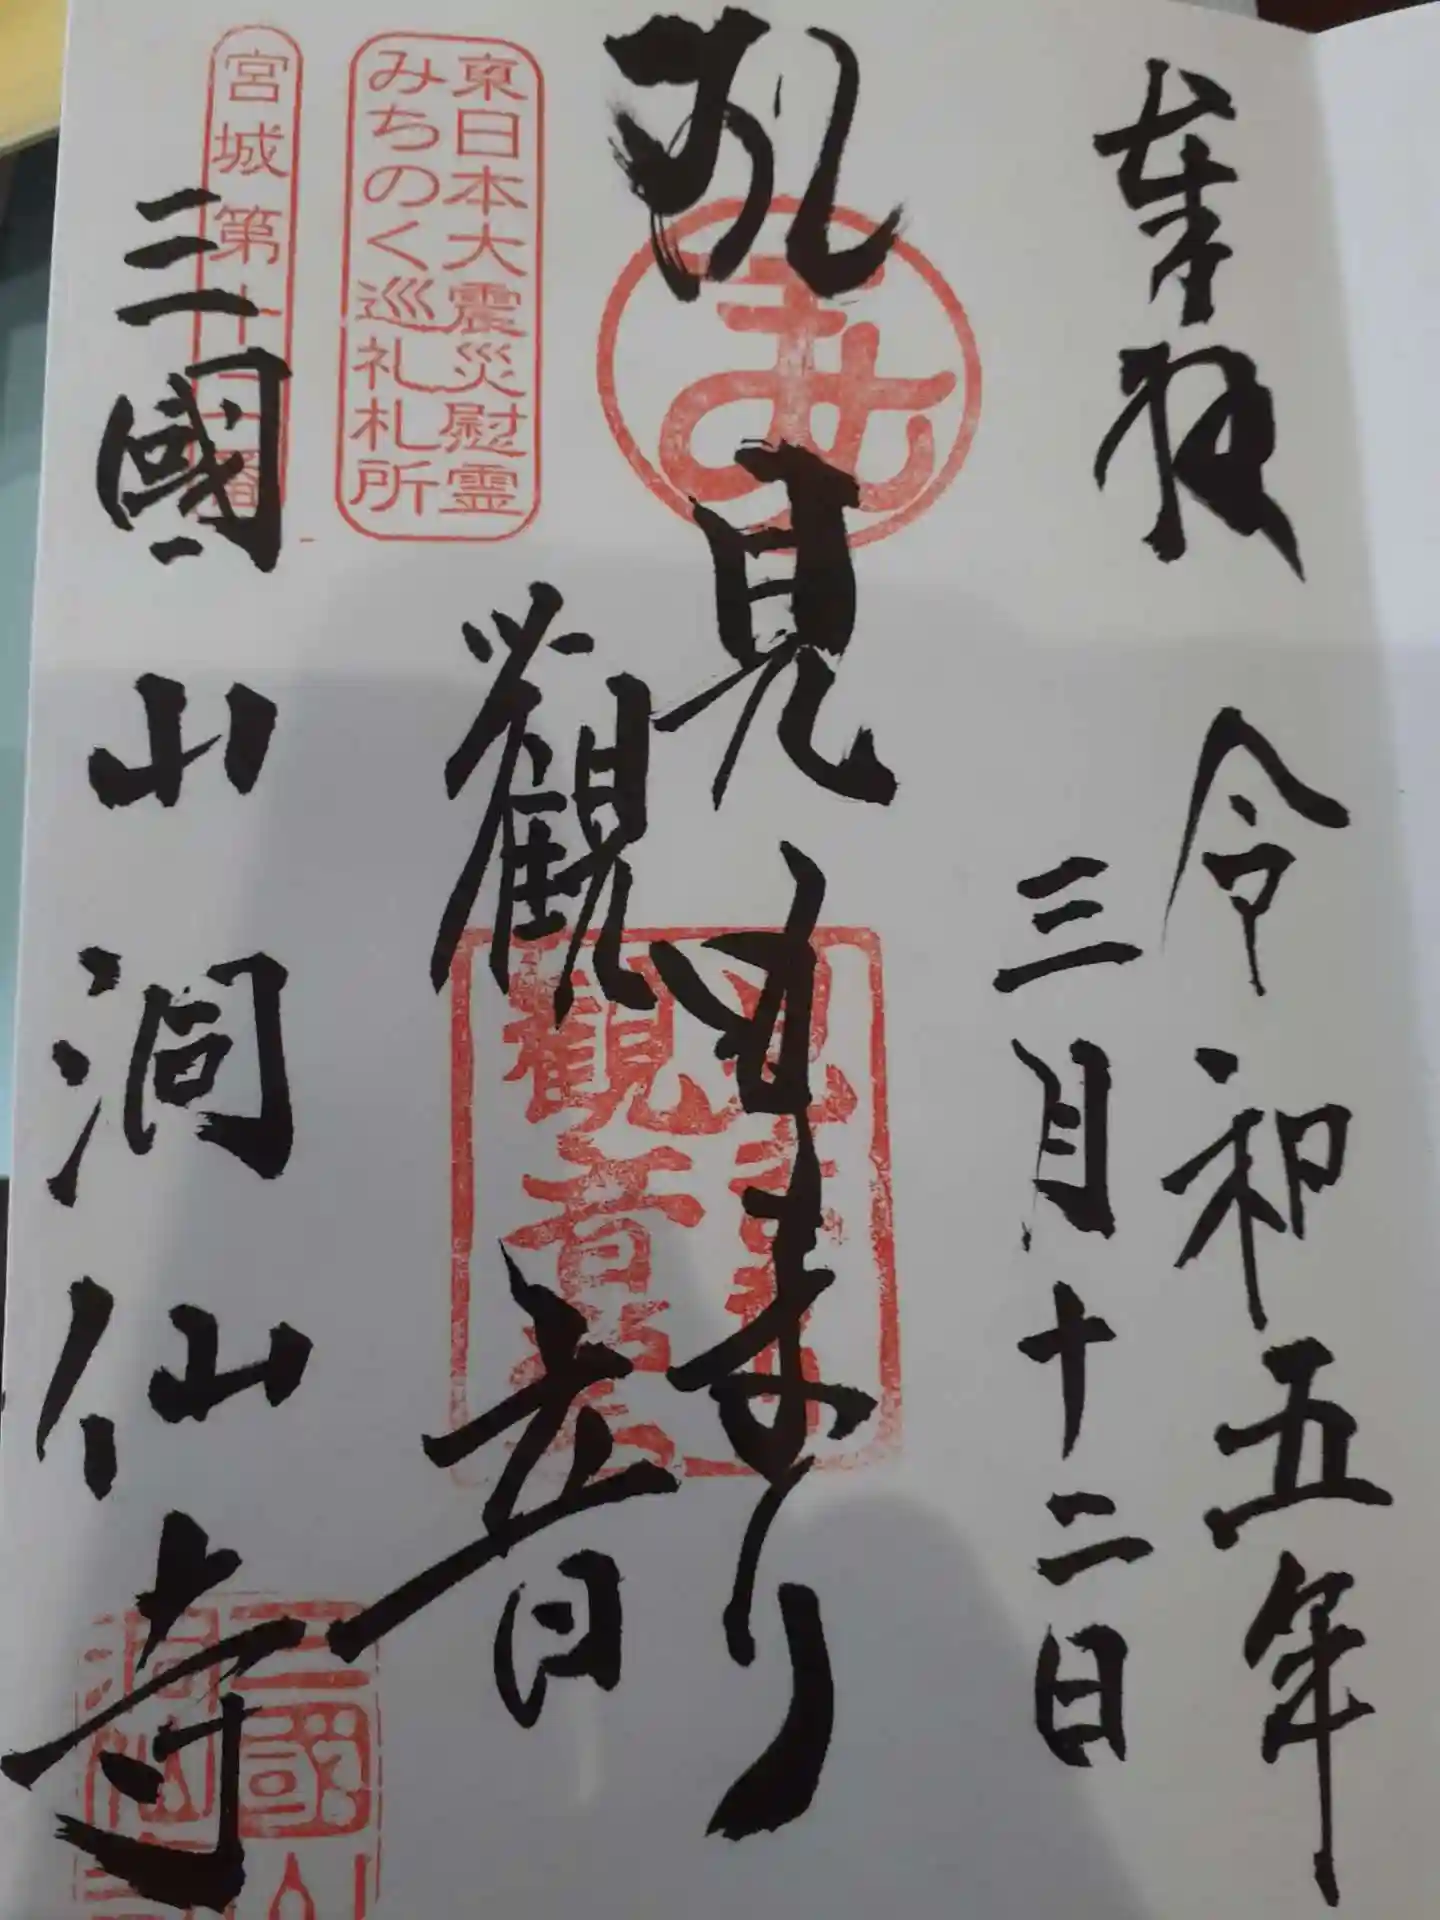 奉拝
令和五年
三月十二日
見
觀音
東日本大震災慰霊
みちのく巡礼札所
宮城第十
三國山洞仙寺
觀音
三國山
洞仙